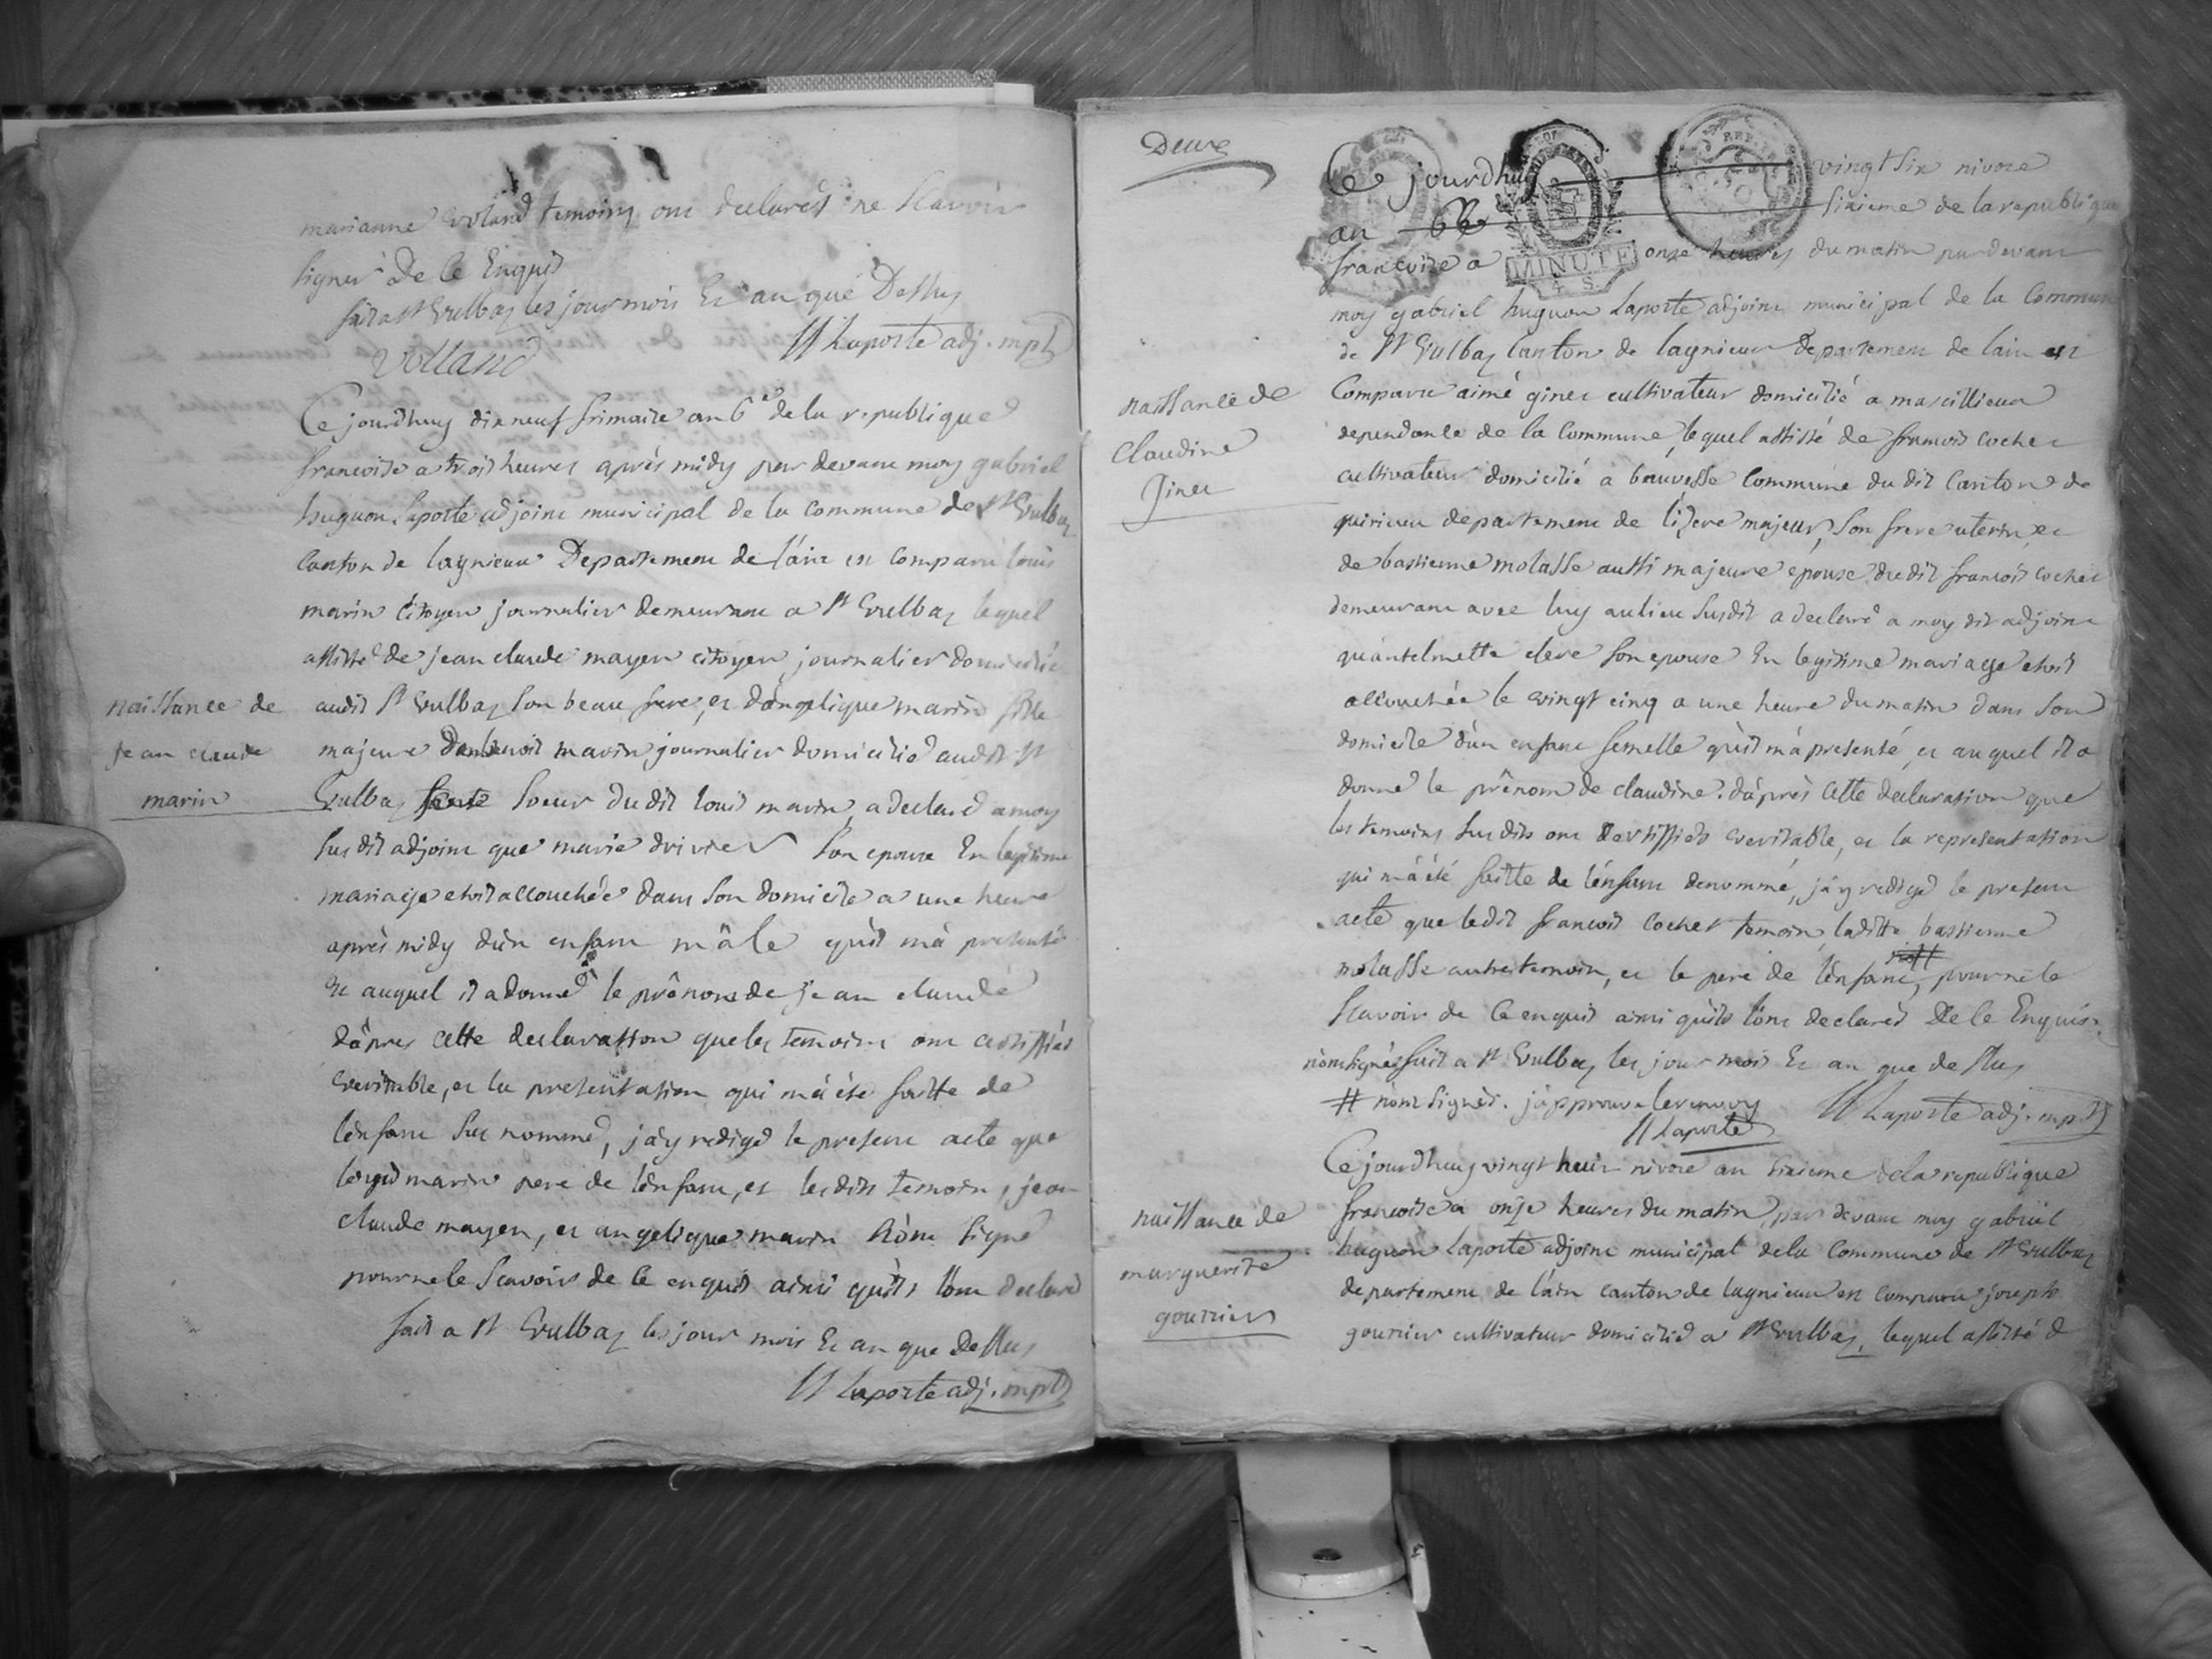 marianne voland temoins ont declarés ne scavoir
signer De Ce Enquis
fait a st vulbas les jour mois Et an que Dessus
Volland
H Laporte adj. mpl
Ce jourdhuy dix neuf frimaire an 6e de la republique
francoise a trois heures après midy par devant moy gabriel
huguon Laporte adjoint municipal de la commune de st vulbas
canton de lagnieux Departement de l'ain est comparu louis
marin citoyen journalier demeurant a st vulbas lequel
assisté de jean claude mayen citoyen journalier domicilié
naissance de
jean claude
marin
audit st vulbas son beau frere, et d'angelique marin fille
majeure de benoit marin journalier domicilié audit st
vulbas soeur du dit louis marin, a declaré a moy
susdit adjoint que marie drivier son epouse En legitime
mariage etoit accouchée dans son domicile a une heure
après midy d'un enfant mâle qu'il m'a presenté
Et auquel il a donné le prênom de jean claude
d'apres cette declaration que les temoins ont certiffiés
veritable, et la presentation qui m'a été faitte de
l'enfant sus nommé, j'ay redigé le present acte que
louis marin pere de l'enfant, et les dits temoins, jean
claude mayen, et angelique marin n'ont signé
pour ne le scavoir de ce enquis ainsi qu'ils l'ont declaré
fait a st vulbas les jour mois Et an que Dessus
H Laporte adj. mpl
Deux
Ce jourdhuy vingt six nivose
an sixieme de la republique
francoise a onze heures du matin par devant
MINUTE
moy gabriel huguon Laporte adjoint municipal de la Commune
de st vulbas canton de lagnieux Departement de l'ain est
naissance de
claudine
Ginet
Comparu aimé ginet cultivateur domicilié a marcillieux
dependante de la Commune, lequel assisté de francois cochet
cultivateur domicilié a bouvesse Commune du dit Canton de
quirieu departement de l'izere majeur, son frere uterin, et
de bastienne molasse aussi majeure epouse du dit francois cochet
demeurant avec luy au lieu susdit a declaré a moy dit adjoint
qu'antelmette clere son epouse En legitime mariage etoit
accouchée le vingt cinq a une heure du matin dans son
domicile d'un enfant femelle qu'il m'a presenté, et auquel il a
donné le prênom de claudine. d'après Cette declaration que
les temoins susdits ont certiffiés veritable, et la representation
qui m'a été faitte de l'enfant denommé, j'ay redigé le present
acte que ledit francois cochet temoin, laditte bastienne
molasse autre temoin, et le pere de l'enfant, # pour ne le
scavoir de ce enquis ainsi qu'ils l'ont declarés De Ce Enquis
n'ont signés fait a st vulbas les jour mois Et an que dessus
# n'ont signés. j'approuve le renvoy
H Laporte
H Laporte adj. mpl
Ce jourdhuy vingt huit nivose an sixieme de la republique
naissance de
marguerite
gourier
francoise a onze heures du matin, par devant moy gabriel
huguon Laporte adjoint municipal de la Commune de st vulbas
departement de l'ain canton de lagnieu est comparu joseph
gourier cultivateur domicilié a st vulbas, lequel assisté d